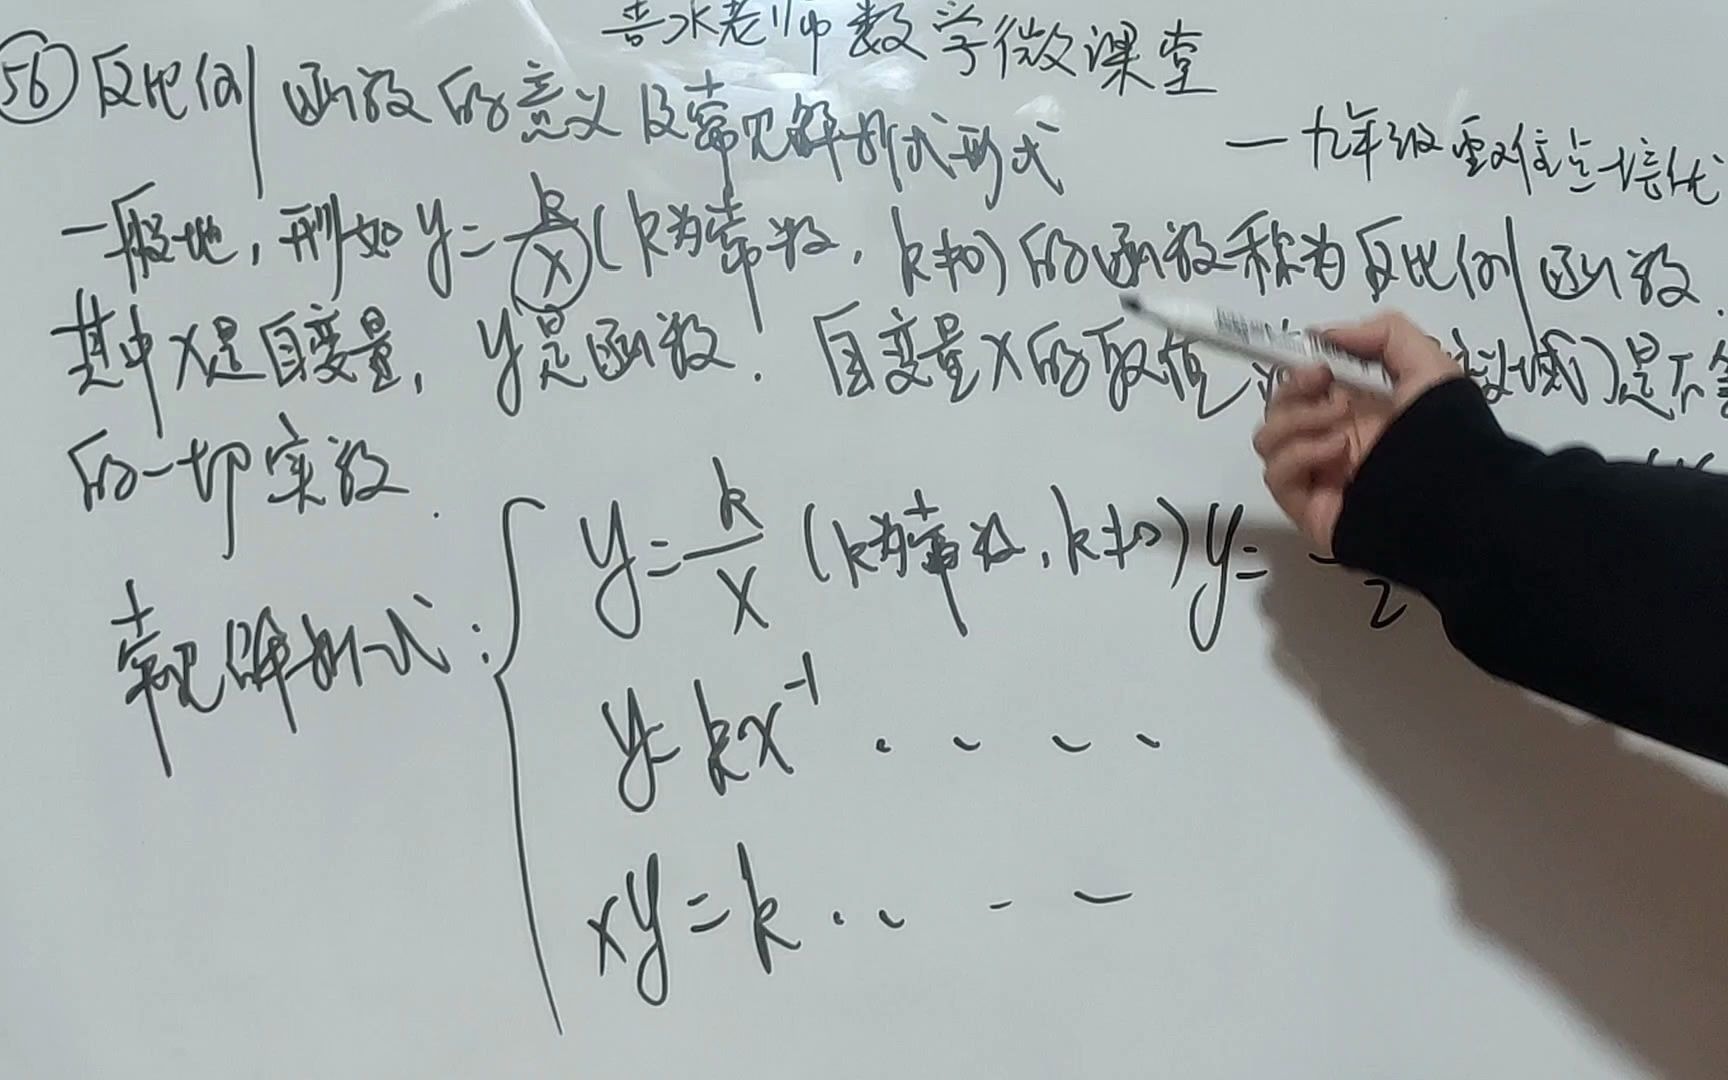 喜水老师数学微课堂
56 反比例函数的意义及常见解析式形式
一九年级重难点培优
一般地,形如 y=k/x (k为常数,k≠0)的函数称为反比例函数.
其中x是自变量,y是函数.自变量x的取值 )是不
的一切实数.
常见解析式:
y=k/x (k为常数,k≠0) y= 2
y=kx⁻¹ ....
xy=k ....